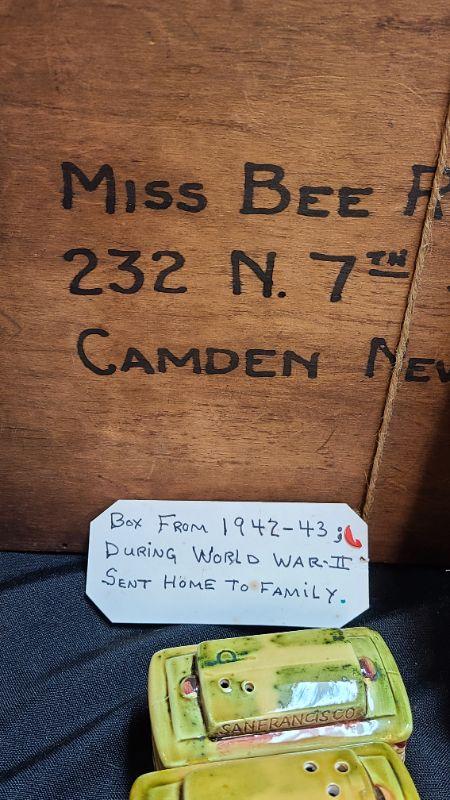 MISS BEE
232 N. 7TH
CAMDEN NEW
BOX FROM 1942-43;
DURING WORLD WAR-II
SENT HOME TO FAMILY.
SANFRANCISCO